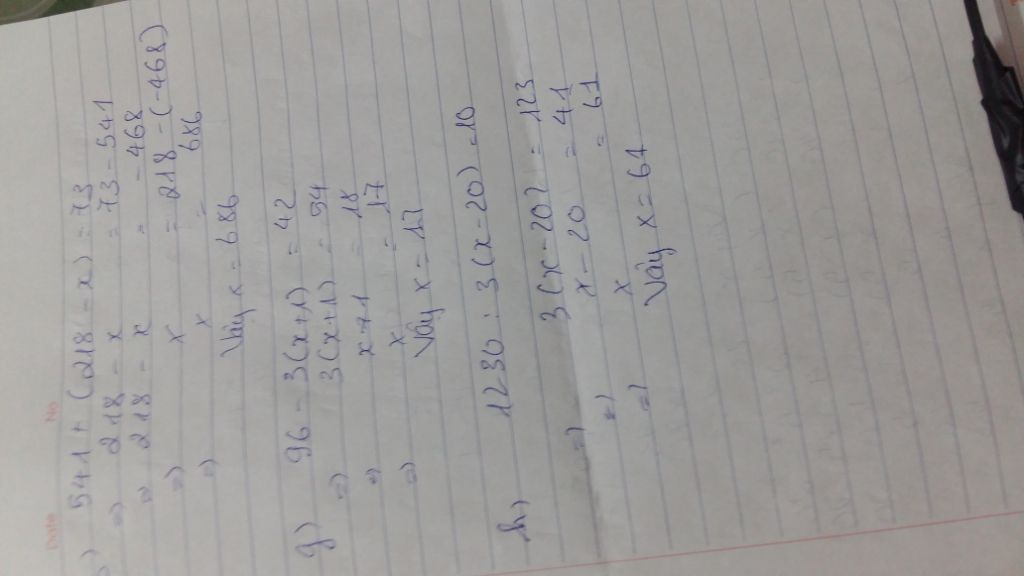 Date No
) 541 + (218 - x) = 73
=) 218 - x = 73 - 541
=) 218 - x = - 468
=) x = 218 - (-468)
=) x = 686
Vậy x = 686
g) 96 - 3(x+1) = 42
=) 3(x+1) = 54
=) x+1 = 18
=) x = 17
Vậy x = 17
h) 1230 : 3(x-20) = 10
=) 3(x-20) = 123
=) x - 20 = 41
=) x = 61
Vậy x = 61